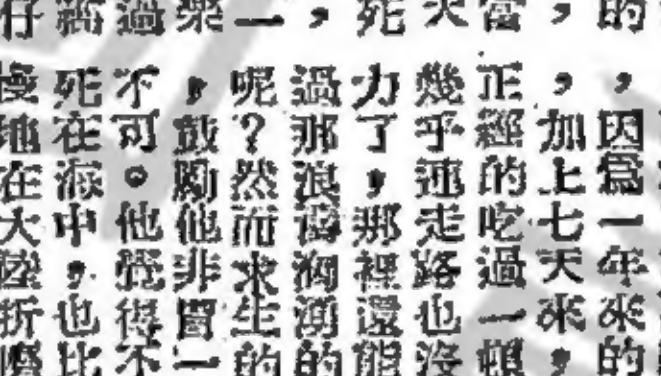 的
，
大
死
，
一
過
仔
，因爲一年來的
，加上七天來，
正經的吃過一頓
幾乎連走路也沒
力了，那裡還能
過那浪濤洶湧的
呢？然而求生的
，鼓勵他非冒一
不可。他覺得不
死在海中，也比
慢地在大陸折磨